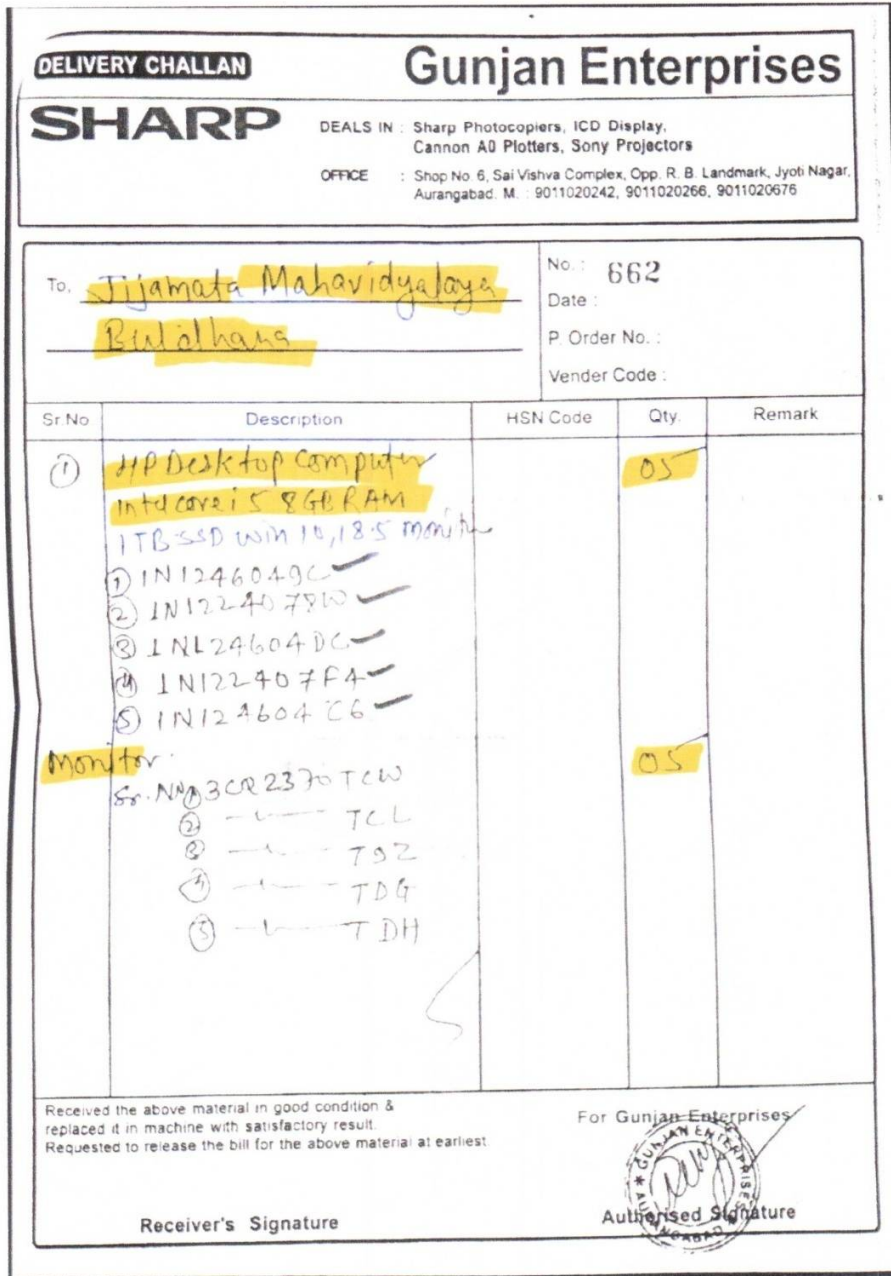 DELIVERY CHALLAN
Gunjan Enterprises
SHARP
DEALS IN : Sharp Photocopiers, ICD Display,
Cannon A0 Plotters, Sony Projectors
OFFICE : Shop No. 6, Sai Vishva Complex, Opp. R. B. Landmark, Jyoti Nagar,
Aurangabad. M. : 9011020242, 9011020266, 9011020676
To, Jijamata Mahavidyalaya
Buldhana
No. : 662
Date :
P. Order No. :
Vender Code :
Sr.No Description HSN Code Qty. Remark
① HP Desktop Computer 05
Intel core i5 8GB RAM
1TB SSD Win 10, 18.5 Monitor
① 1N1246049C
② 1N1224078W
③ 1N124604DC
④ 1N122407F4
⑤ 1N124604C6
Monitor. 05
Sr. No ① 3CR2370TCW
② —〃— TCL
③ —〃— T9Z
④ —〃— TDG
⑤ —〃— TDH
Received the above material in good condition &
replaced it in machine with satisfactory result.
Requested to release the bill for the above material at earliest.
For Gunjan Enterprises
GUNJAN ENTERPRISES * AURANGABAD *
Receiver's Signature
Authorised Signature